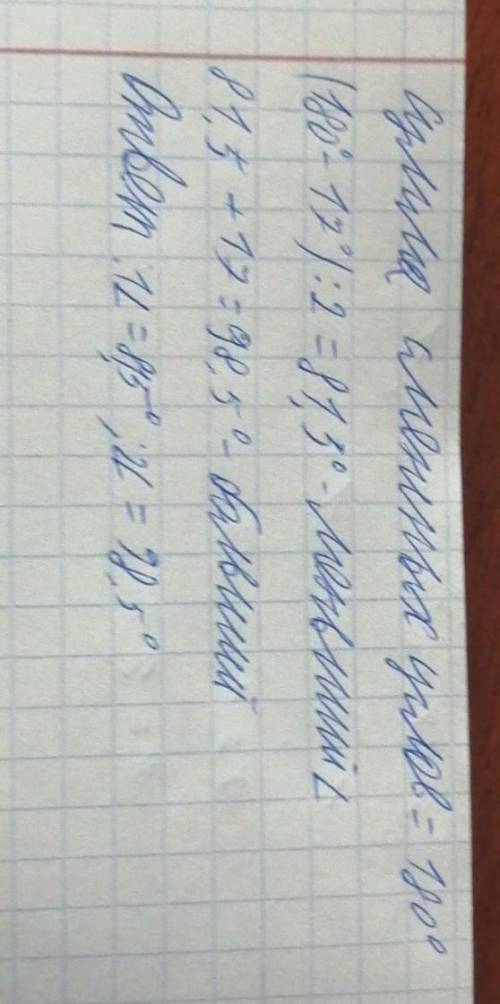 Сумма смежных углов = 180°
(180° - 17°) : 2 = 81,5° - меньший ∠
81,5 + 17 = 98,5° - больший
Ответ: ∠1 = 8,5°; ∠2 = 98,5°